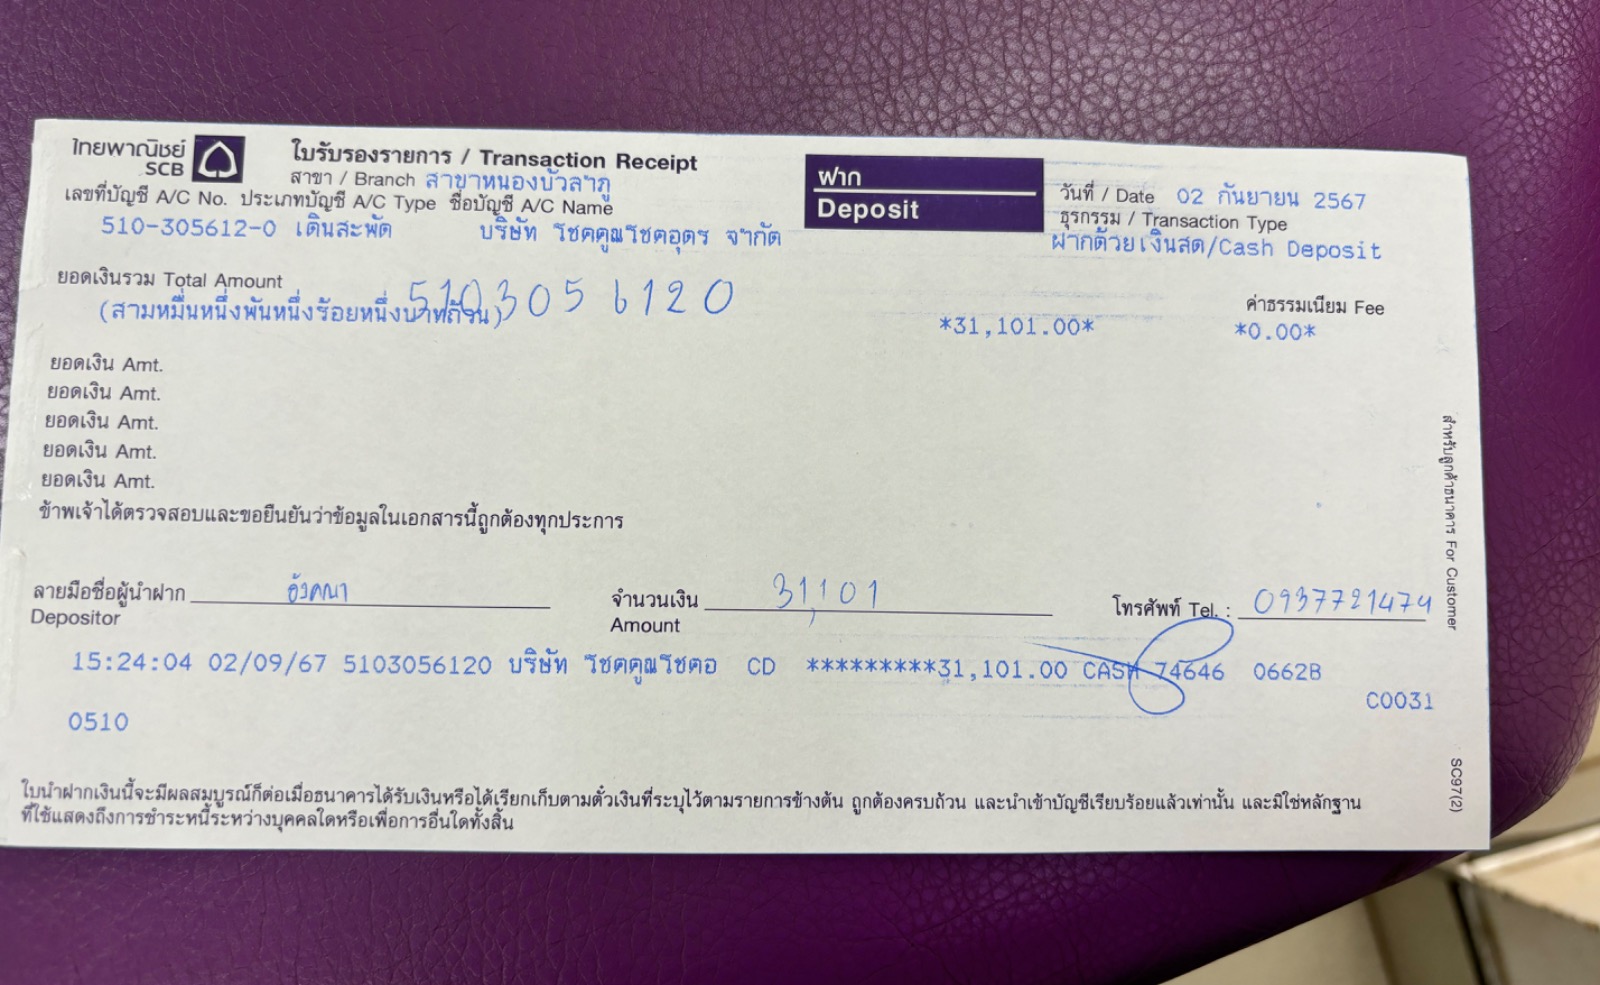 ไทยพาณิชย์
SCB
ใบรับรองรายการ / Transaction Receipt
สาขา / Branch สาขาหนองบัวลำภู
เลขที่บัญชี A/C No. ประเภทบัญชี A/C Type ชื่อบัญชี A/C Name
510-305612-0 เดินสะพัด บริษัท โชคคูณโชคอุดร จำกัด
ฝาก
Deposit
วันที่ / Date 02 กันยายน 2567
ธุรกรรม / Transaction Type
ฝากด้วยเงินสด/Cash Deposit
ยอดเงินรวม Total Amount
5103056120
(สามหมื่นหนึ่งพันหนึ่งร้อยหนึ่งบาทถ้วน)
*31,101.00*
ค่าธรรมเนียม Fee
*0.00*
ยอดเงิน Amt.
ยอดเงิน Amt.
ยอดเงิน Amt.
ยอดเงิน Amt.
ยอดเงิน Amt.
ข้าพเจ้าได้ตรวจสอบและขอยืนยันว่าข้อมูลในเอกสารนี้ถูกต้องทุกประการ
สำหรับลูกค้าธนาคาร For Customer
ลายมือชื่อผู้นำฝาก อังคณา
Depositor
จำนวนเงิน 31,101
Amount
โทรศัพท์ Tel. : 0937721474
15:24:04 02/09/67 5103056120 บริษัท โชคคูณโชคอ CD *********31,101.00 CASH 74646 0662B
C0031
0510
SC97(2)
ใบนำฝากเงินนี้จะมีผลสมบูรณ์ก็ต่อเมื่อธนาคารได้รับเงินหรือได้เรียกเก็บตามตั๋วเงินที่ระบุไว้ตามรายการข้างต้น ถูกต้องครบถ้วน และนำเข้าบัญชีเรียบร้อยแล้วเท่านั้น และมิใช่หลักฐาน
ที่ใช้แสดงถึงการชำระหนี้ระหว่างบุคคลใดหรือเพื่อการอื่นใดทั้งสิ้น